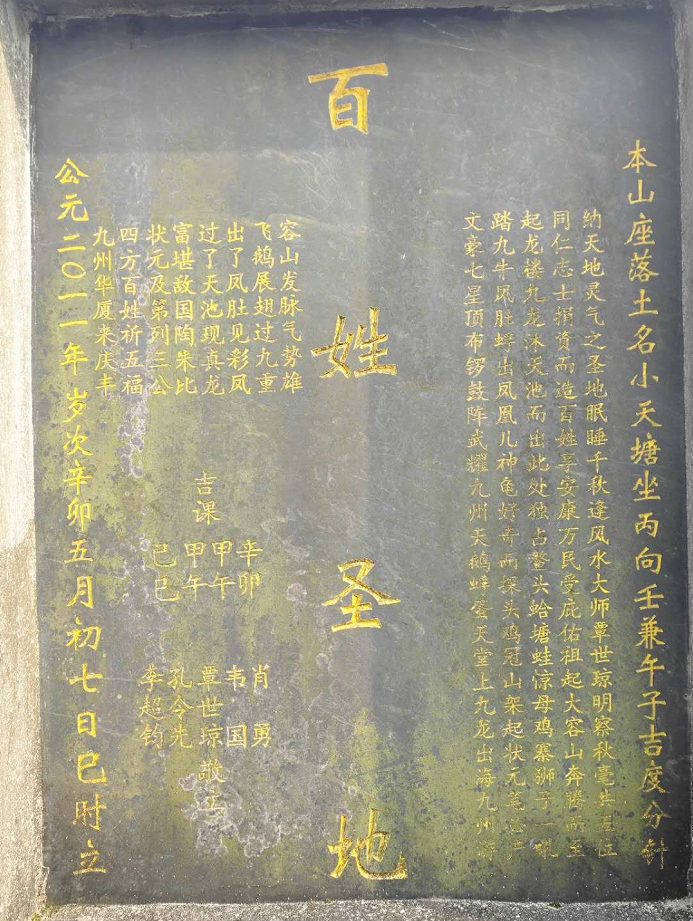 本山座落土名小天塘坐丙向壬兼午子吉度分针
纳天地灵气之圣地眠睡千秋逢风水大师覃世琼明察秋毫出至位
同仁志士捐资而造百姓享安康万民受庇佑祖起大容山奔腾而至
起龙楼九龙沐天池而出此处独占鳌头蛤塘蛙惊母鸡寨狮子一吼
踏九牛凤肚蜉出凤凰儿神龟好奇而探头鸡冠山架起状元笔必产
文豪七星顶布锣鼓阵武耀九州天鹅蜉蛋天堂上九龙出海九州游
百姓圣地
容山发脉气势雄
飞鹅展翅过九重
出了凤肚见彩凤
过了天池现真龙
富堪敌国陶朱比
状元及第列三公
四方百姓祈五福
九州华厦来庆丰
吉课
辛卯
甲午
甲午
己巳
肖勇
韦国
覃世琼敬立
孔令先
李超钧
公元二〇一一年岁次辛卯五月初七日巳时立